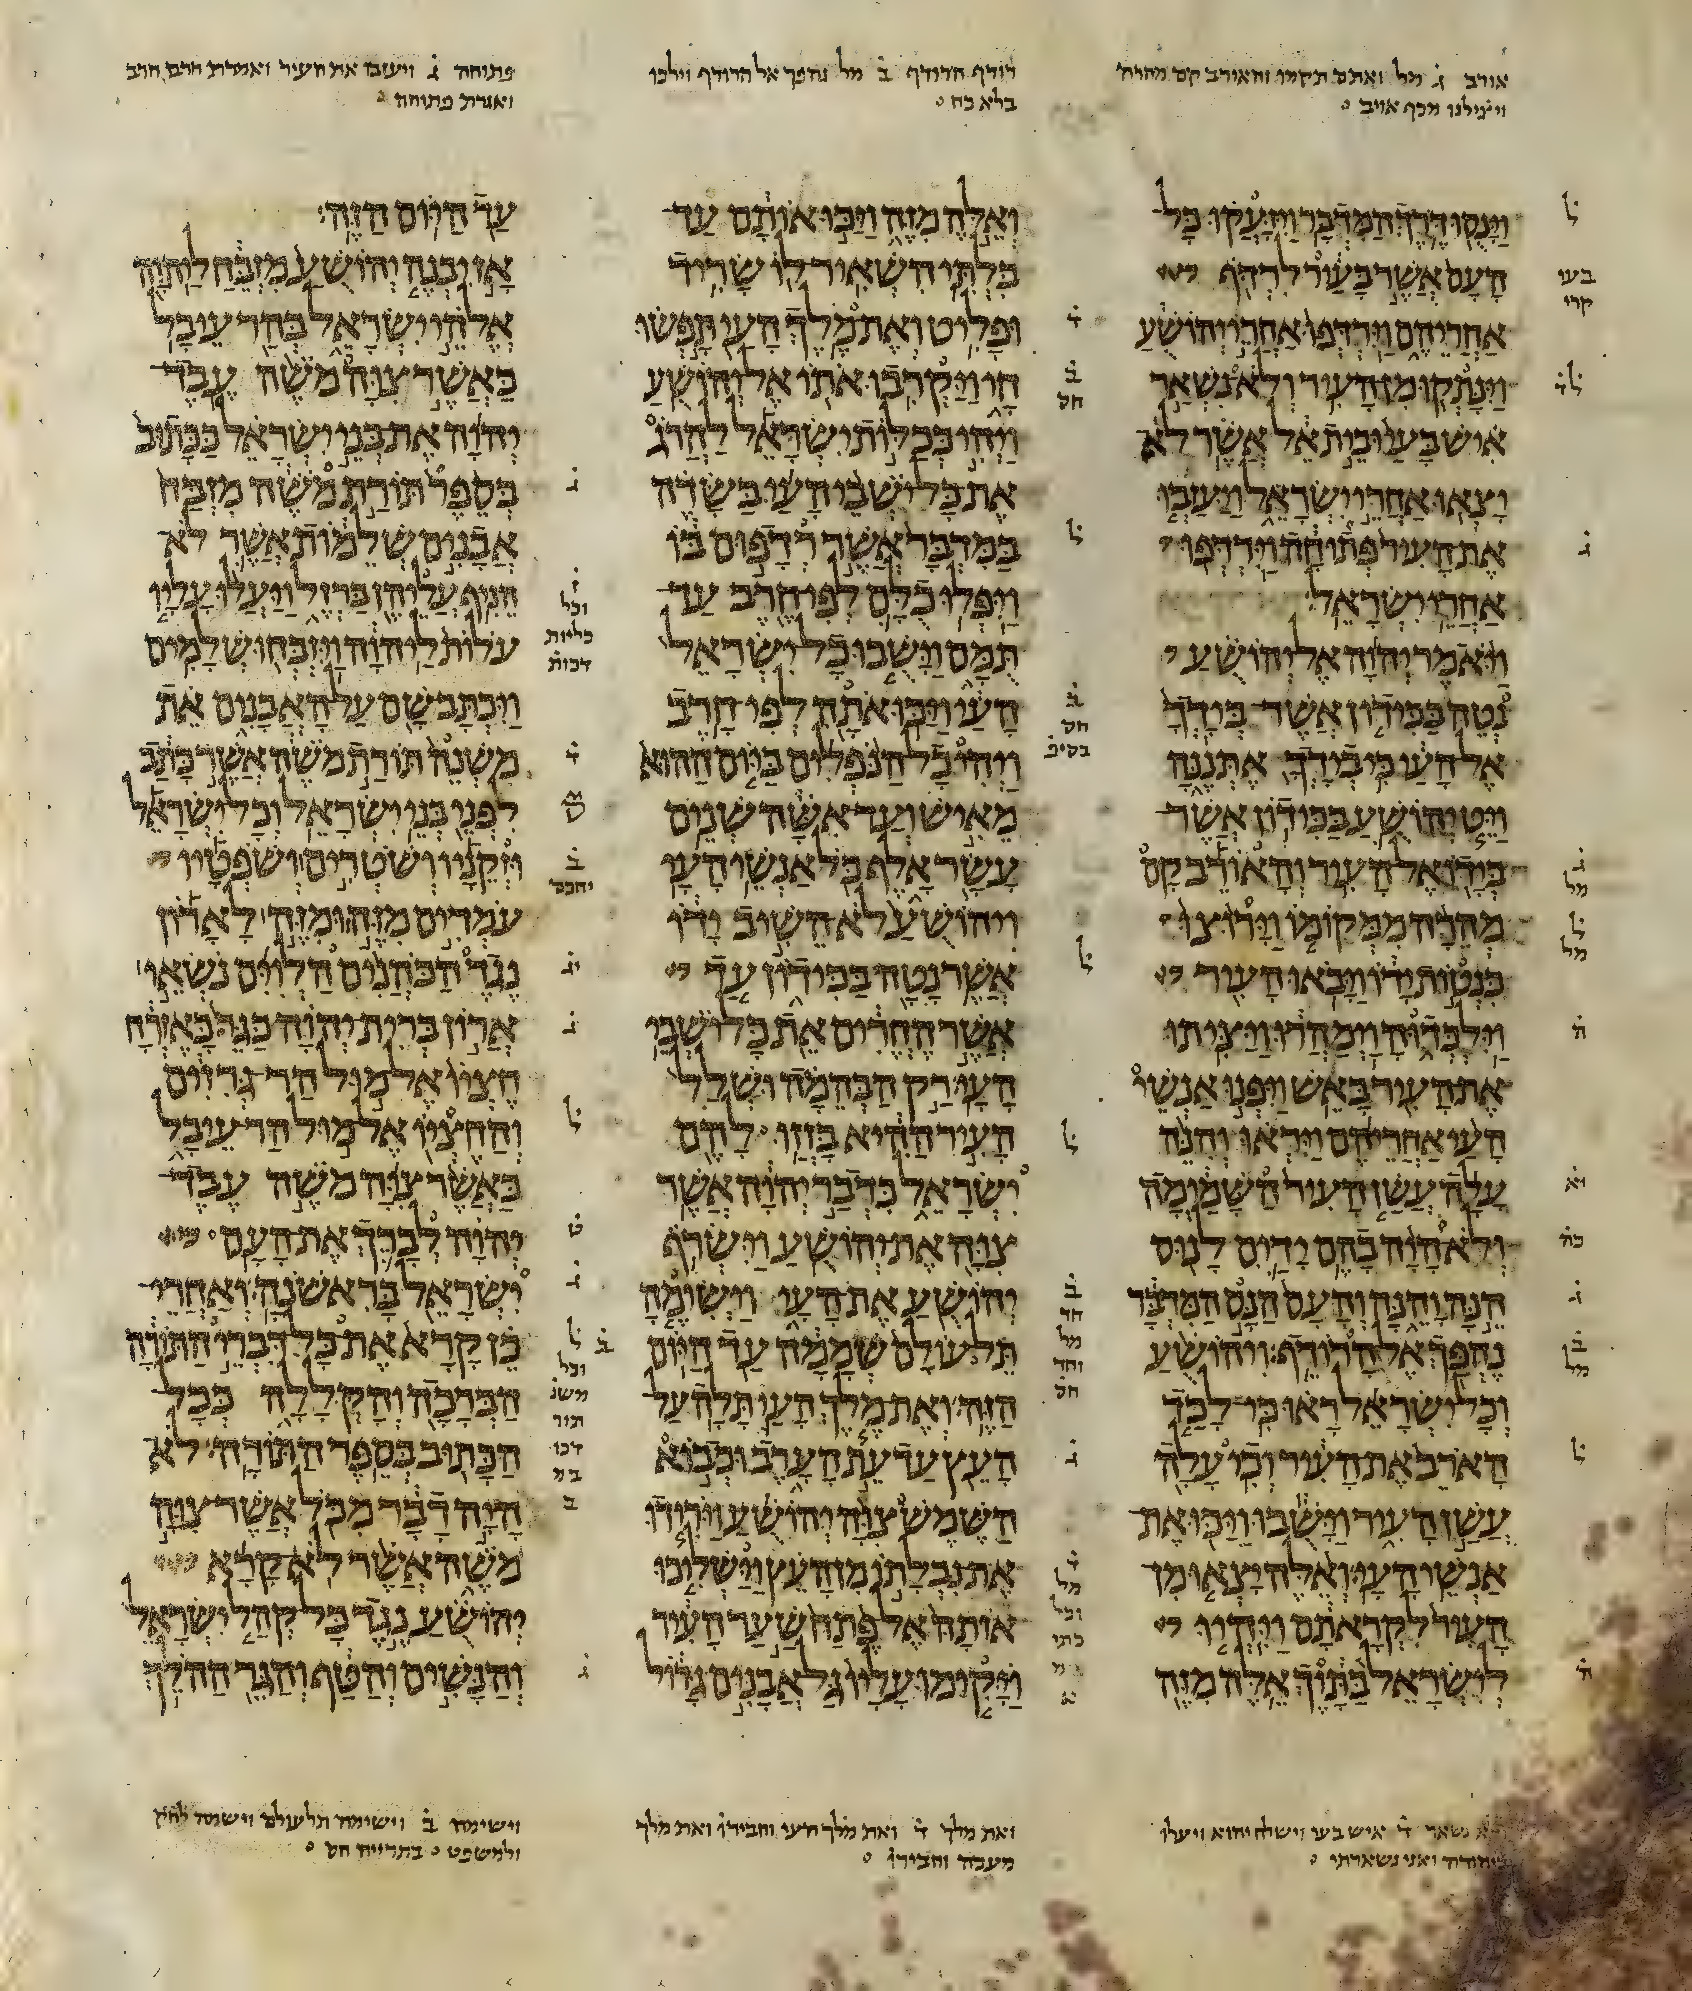 אורב ג֗ מל ואתם תקמו והאורב קם מהרה
ויצילנו מכף אויב
וינסו דרך המדבר ויזעקו כל
העם אשר בעיר לרדף
אחריהם וירדפו אחרי יהושע
וינתקו מן העיר ולא נשאר
איש בעי ובית אל אשר לא
יצאו אחרי ישראל ויעזבו
את העיר פתוחה וירדפו
אחרי ישראל
ויאמר יהוה אל יהושע
נטה בכידון אשר בידך
אל העי כי בידך אתננה
ויט יהושע בכידון אשר
בידו אל העיר והאורב קם
מהרה ממקומו וירוצו
כנטות ידו ויבאו העיר
וילכדוה וימהרו ויציתו
את העיר באש ויפנו אנשי
העי אחריהם ויראו והנה
עלה עשן העיר השמימה
ולא היה בהם ידים לנוס
הנה והנה והעם הנס המדבר
נהפך אל הרודף ויהושע
וכל ישראל ראו כי לכד
הארב את העיר וכי עלה
עשן העיר וישבו ויכו את
אנשי העי ואלה יצאו מן
העיר לקראתם ויהיו
לישראל בתוך אלה מזה
נשאר ד֗ איש בעי וישלח יהוא ויעלו
יהודה ואני נשארתי
רודף הרודף ב֗ מל נהפך אל הרודף וילכו
בלא כח
ואלה מזה ויכו אותם עד
בלתי השאיר לו שריד
ופליט ואת מלך העי תפשו
חי ויקרבו אתו אל יהושע
ויהי ככלות ישראל להרג
את כל ישבי העי בשדה
במדבר אשר רדפום בו
ויפלו כלם לפי חרב עד
תמם וישבו כל ישראל
העי ויכו אתה לפי חרב
ויהי כל הנפלים ביום ההוא
מאיש ועד אשה שנים
עשר אלף כל אנשי העי
ויהושע לא השיב ידו
אשר נטה בכידון עד
אשר החרים את כל ישבי
העי רק הבהמה ושלל
העיר ההיא בזזו להם
ישראל כדבר יהוה אשר
צוה את יהושע וישרף
יהושע את העי וישימה
תל עולם שממה עד היום
הזה ואת מלך העי תלה על
העץ עד עת הערב וכבוא
השמש צוה יהושע וירידו
את נבלתו מן העץ וישליכו
אותה אל פתח שער העיר
ויקימו עליו גל אבנים גדול
ואת מלך ד֗ ואת מלך העי וחבירו ואת מלך
מעכה וחבירו
פתוחה ג֗ ויעזבו את העיר ואמרת חרב חרב
ואגרת פתוחה
עד היום הזה
אז יבנה יהושע מזבח ליהוה
אלהי ישראל בהר עיבל
כאשר צוה משה עבד
יהוה את בני ישראל ככתוב
בספר תורת משה מזבח
אבנים שלמות אשר לא
הניף עליהן ברזל ויעלו עליו
עלות ליהוה ויזבחו שלמים
ויכתב שם על האבנים את
משנה תורת משה אשר כתב
לפני בני ישראל וכל ישראל
וזקניו ושטרים ושפטיו
עמדים מזה ומזה לארון
נגד הכהנים הלוים נשאי
ארון ברית יהוה כגר כאזרח
חציו אל מול הר גרזים
והחציו אל מול הר עיבל
כאשר צוה משה עבד
יהוה לברך את העם
ישראל בראשנה ואחרי
כן קרא את כל דברי התורה
הברכה והקללה ככל
הכתוב בספר התורה לא
היה דבר מכל אשר צוה
משה אשר לא קרא
יהושע נגד כל קהל ישראל
והנשים והטף והגר ההלך
וישימה ב֗ וישימה תל עולם
ולמשפט בתריה חס